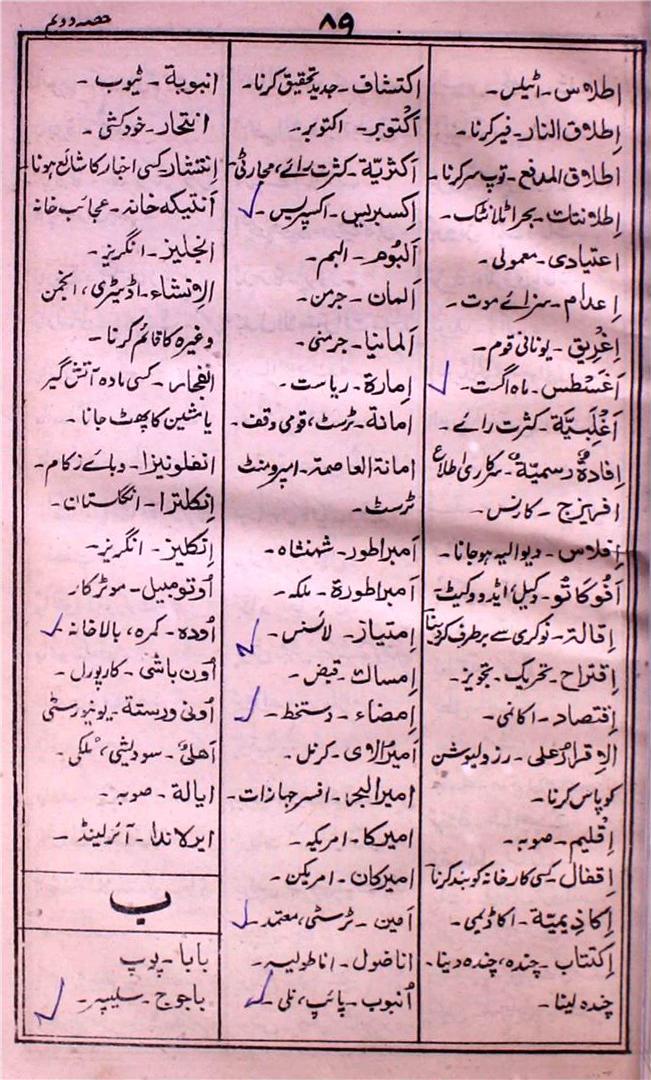 حصہ دوئم
۸۹
اطلاس - اٹیلس -
إطلاق النار - فیر کرنا -
اطلاق المدفع - توپ سر کرنا -
إطلانتات - بحر اٹلانٹک -
اعتیادی - معمولی -
إعدام - سزائے موت -
إغریق - یونانی قوم -
أغسطس - ماہ اگست -
أغلبیّة - کثرت رائے -
إفادةٌ رسمیةٌ - سرکاری اطلاع
افریزج - کارنس -
إفلاس - دیوالیہ ہوجانا -
أفوکاتو - وکیل، ایڈووکیٹ -
إقالة - نوکری سے برطرف کردینا
إقتراح - تحریک - تجویز -
إقتصاد - اکانمی -
الإقرار علی - رزولیوشن
کو پاس کرنا -
إقلیم - صوبہ -
إقفال - کسی کارخانہ کو بند کرنا
إکاذیمیة - اکاڈیمی -
إکتتاب - چندہ، چندہ دینا -
چندہ لینا -
اکتشاف - جدید تحقیق کرنا -
أکتوبر - اکتوبر -
أکثریّة - کثرت رائے، مجارٹی -
إکسبریس - اکسپریس -
ألبوم - البم -
ألمان - جرمن -
ألمانیا - جرمنی -
إمارة - ریاست -
أمانة - ٹرسٹ، قومی وقف -
امانة العاصمة - امپرومنٹ
ٹرسٹ -
أمبراطور - شہنشاہ -
أمبراطورة - ملکہ -
إمتیاز - لائسنس -
إمساک - قبض -
إمضاء - دستخط -
أمیرالای - کرنل -
امیرالبحر - افسر جہازات -
امیرکا - امریکہ -
امیرکان - امریکن -
أمین - ٹرسٹی، معتمد -
اناضول - اناطولیہ -
أنبوب - پائپ، نلی -
انبوبة - ٹیوب -
انتحار - خودکشی -
إنتشار - کسی اخبار کا شائع ہونا
أنتیکہ خانہ - عجائب خانہ
انجلیز - انگریز -
الإنشاء - اڈیٹری، انجمن
وغیرہ کا قائم کرنا -
انفجار - کسی مادہ آتش گیر
یا شین کا پھٹ جانا -
انفلونیزا - وبائے زکام -
إنکلترا - انگلستان -
إنکلیز - انگریز -
أوتومبیل - موٹر کار
أودہ - کمرہ، بالاخانہ -
أون باشی - کارپورل -
أونی ورستة - یونیورسٹی
أهلیٌ - سودیشی، ملکی -
ایالة - صوبہ -
ایرلاندا - آئرلینڈ -
ب
بابا - پوپ
باجوج - سلیپر -